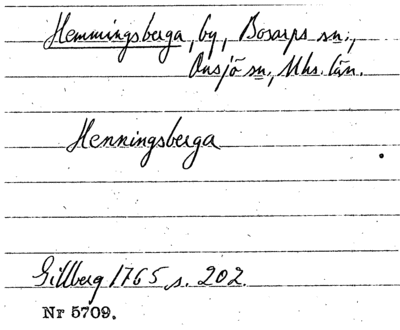 Hemmingsberga, by, Bosarps sn.,
Onsjö sn., Mhs. län.
Henningsberga
Gillberg 1765 s. 202.
Nr 5709.